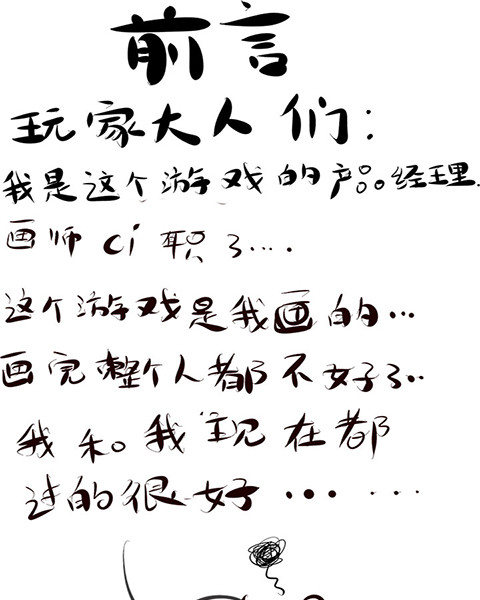 前言
玩家大人们：
我是这个游戏的产品经理.
画师ci职了….
这个游戏是我画的…
画完整个人都不好了..
我和我现在都
过的很好……